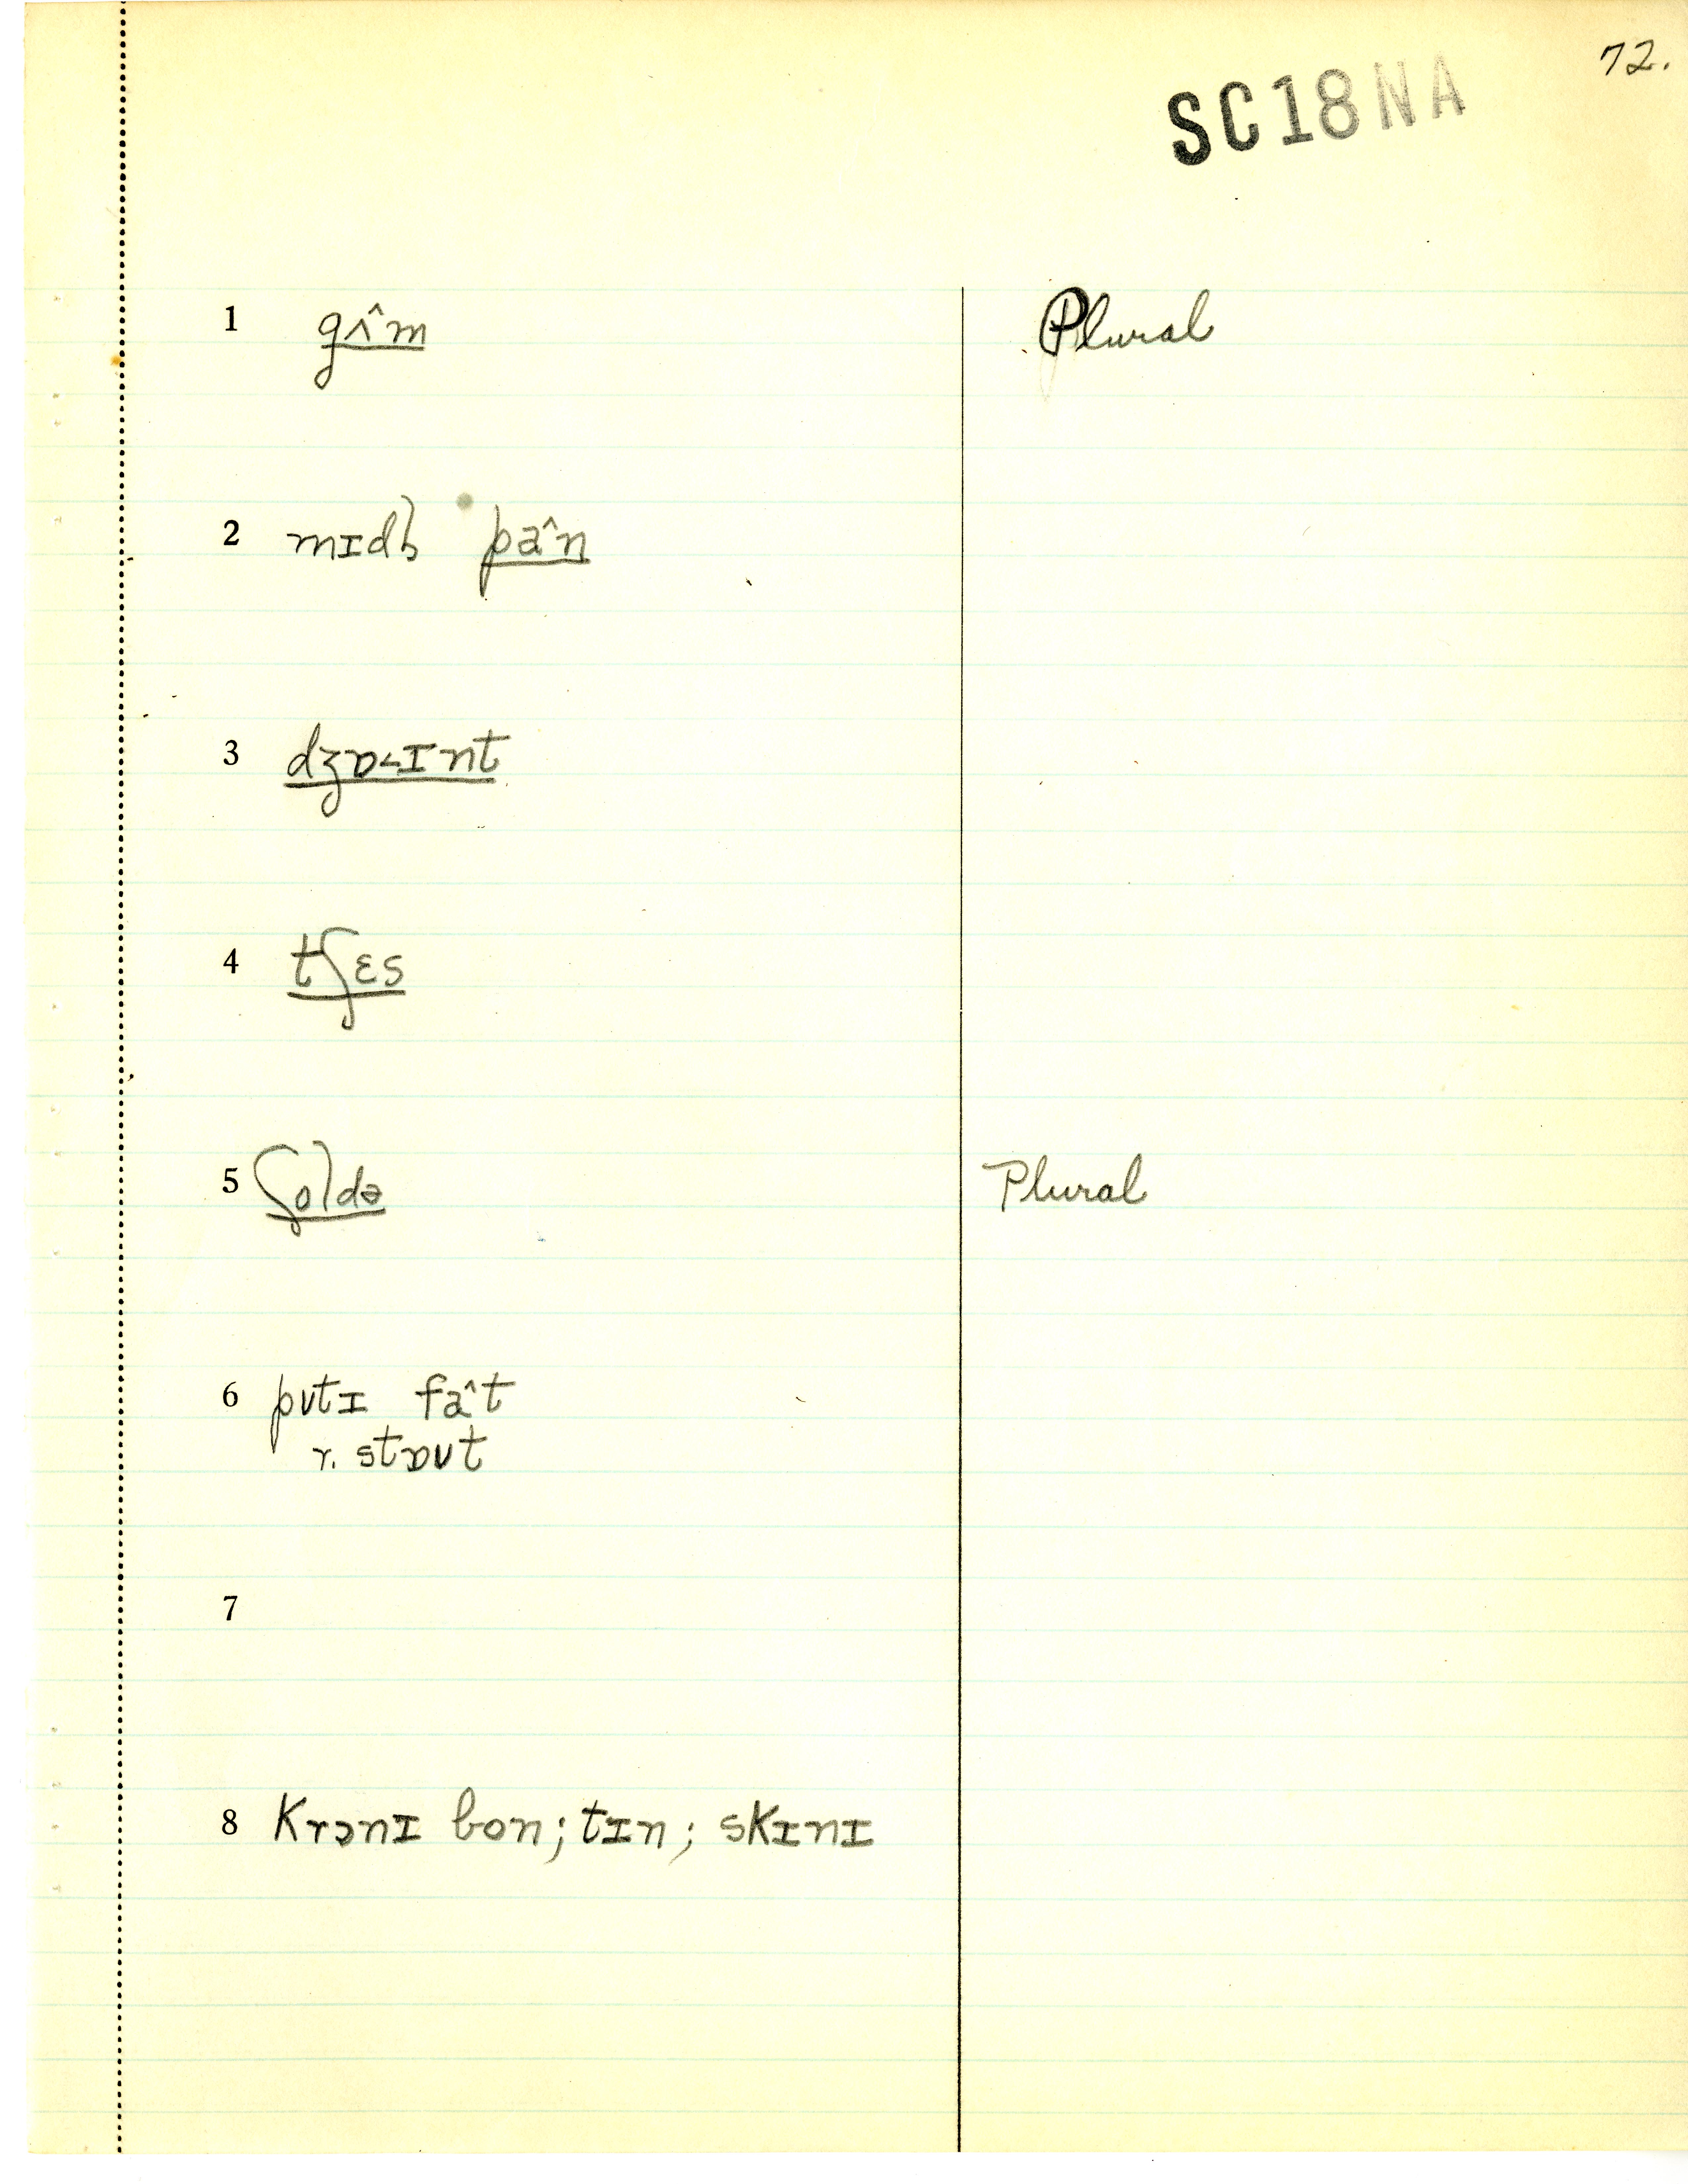 72.
SC18NA
1 gʌ̂m Plural
2 mɪdḷ pa̭n
3 dʒɒ˂ɪnt
4 tʃɛs
5 ʃoldə Plural
6 pʊtɪ fa̭t
r. stɒʊt
7
8 krɔnɪ bon; tɪn; skɪnɪ